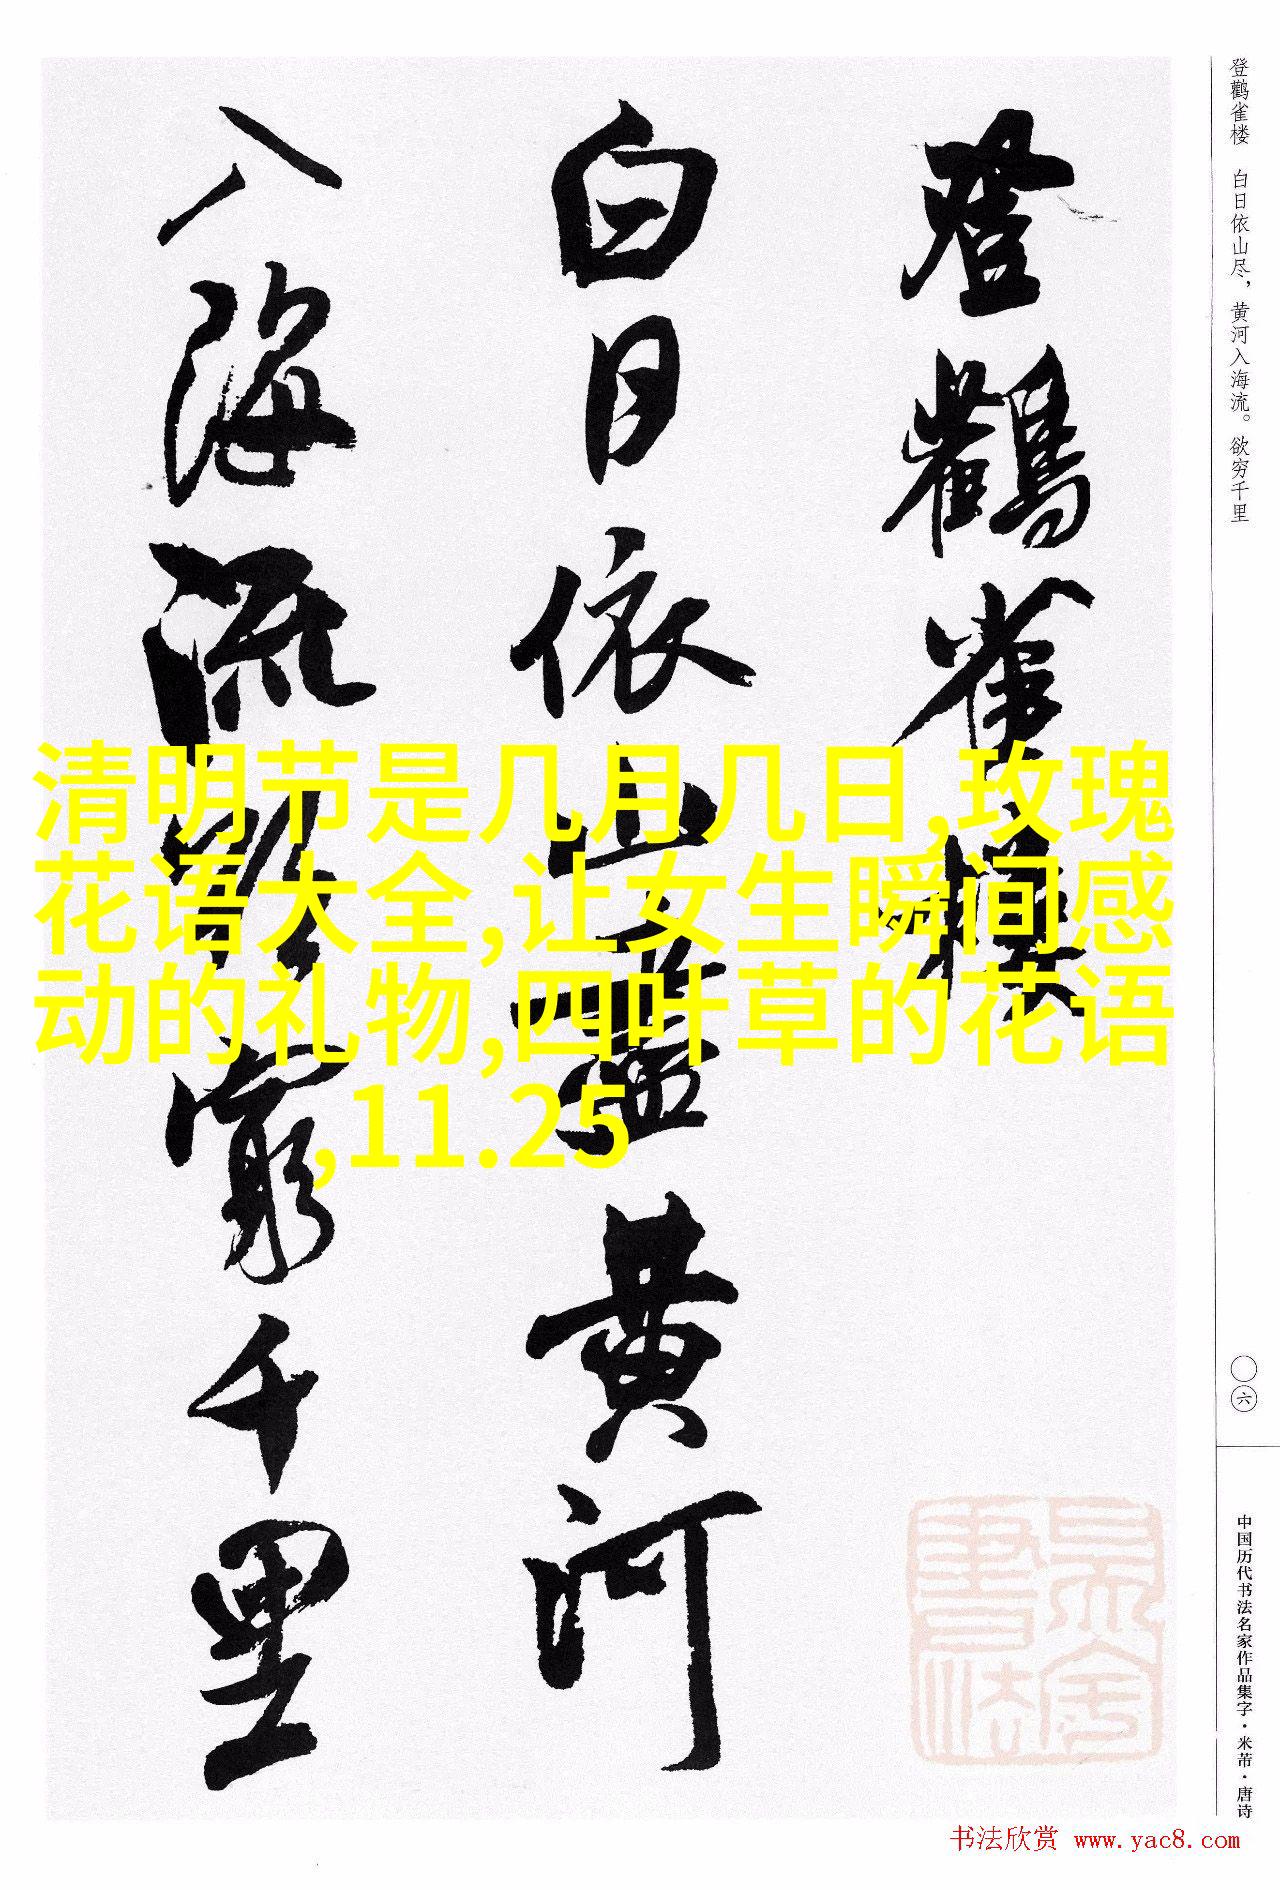 登鸛雀樓
白日依山盡黄河
入海流欲窮千里
登鹳雀楼 白日依山尽，黄河入海流。欲穷千里
〇六
中国历代书法名家作品集字·米芾·唐诗
清明节是几月几日,玫瑰
花语大全,让女生瞬间感
动的礼物,四叶草的花语
,11.25
書法
书法欣赏 www.yac8.com